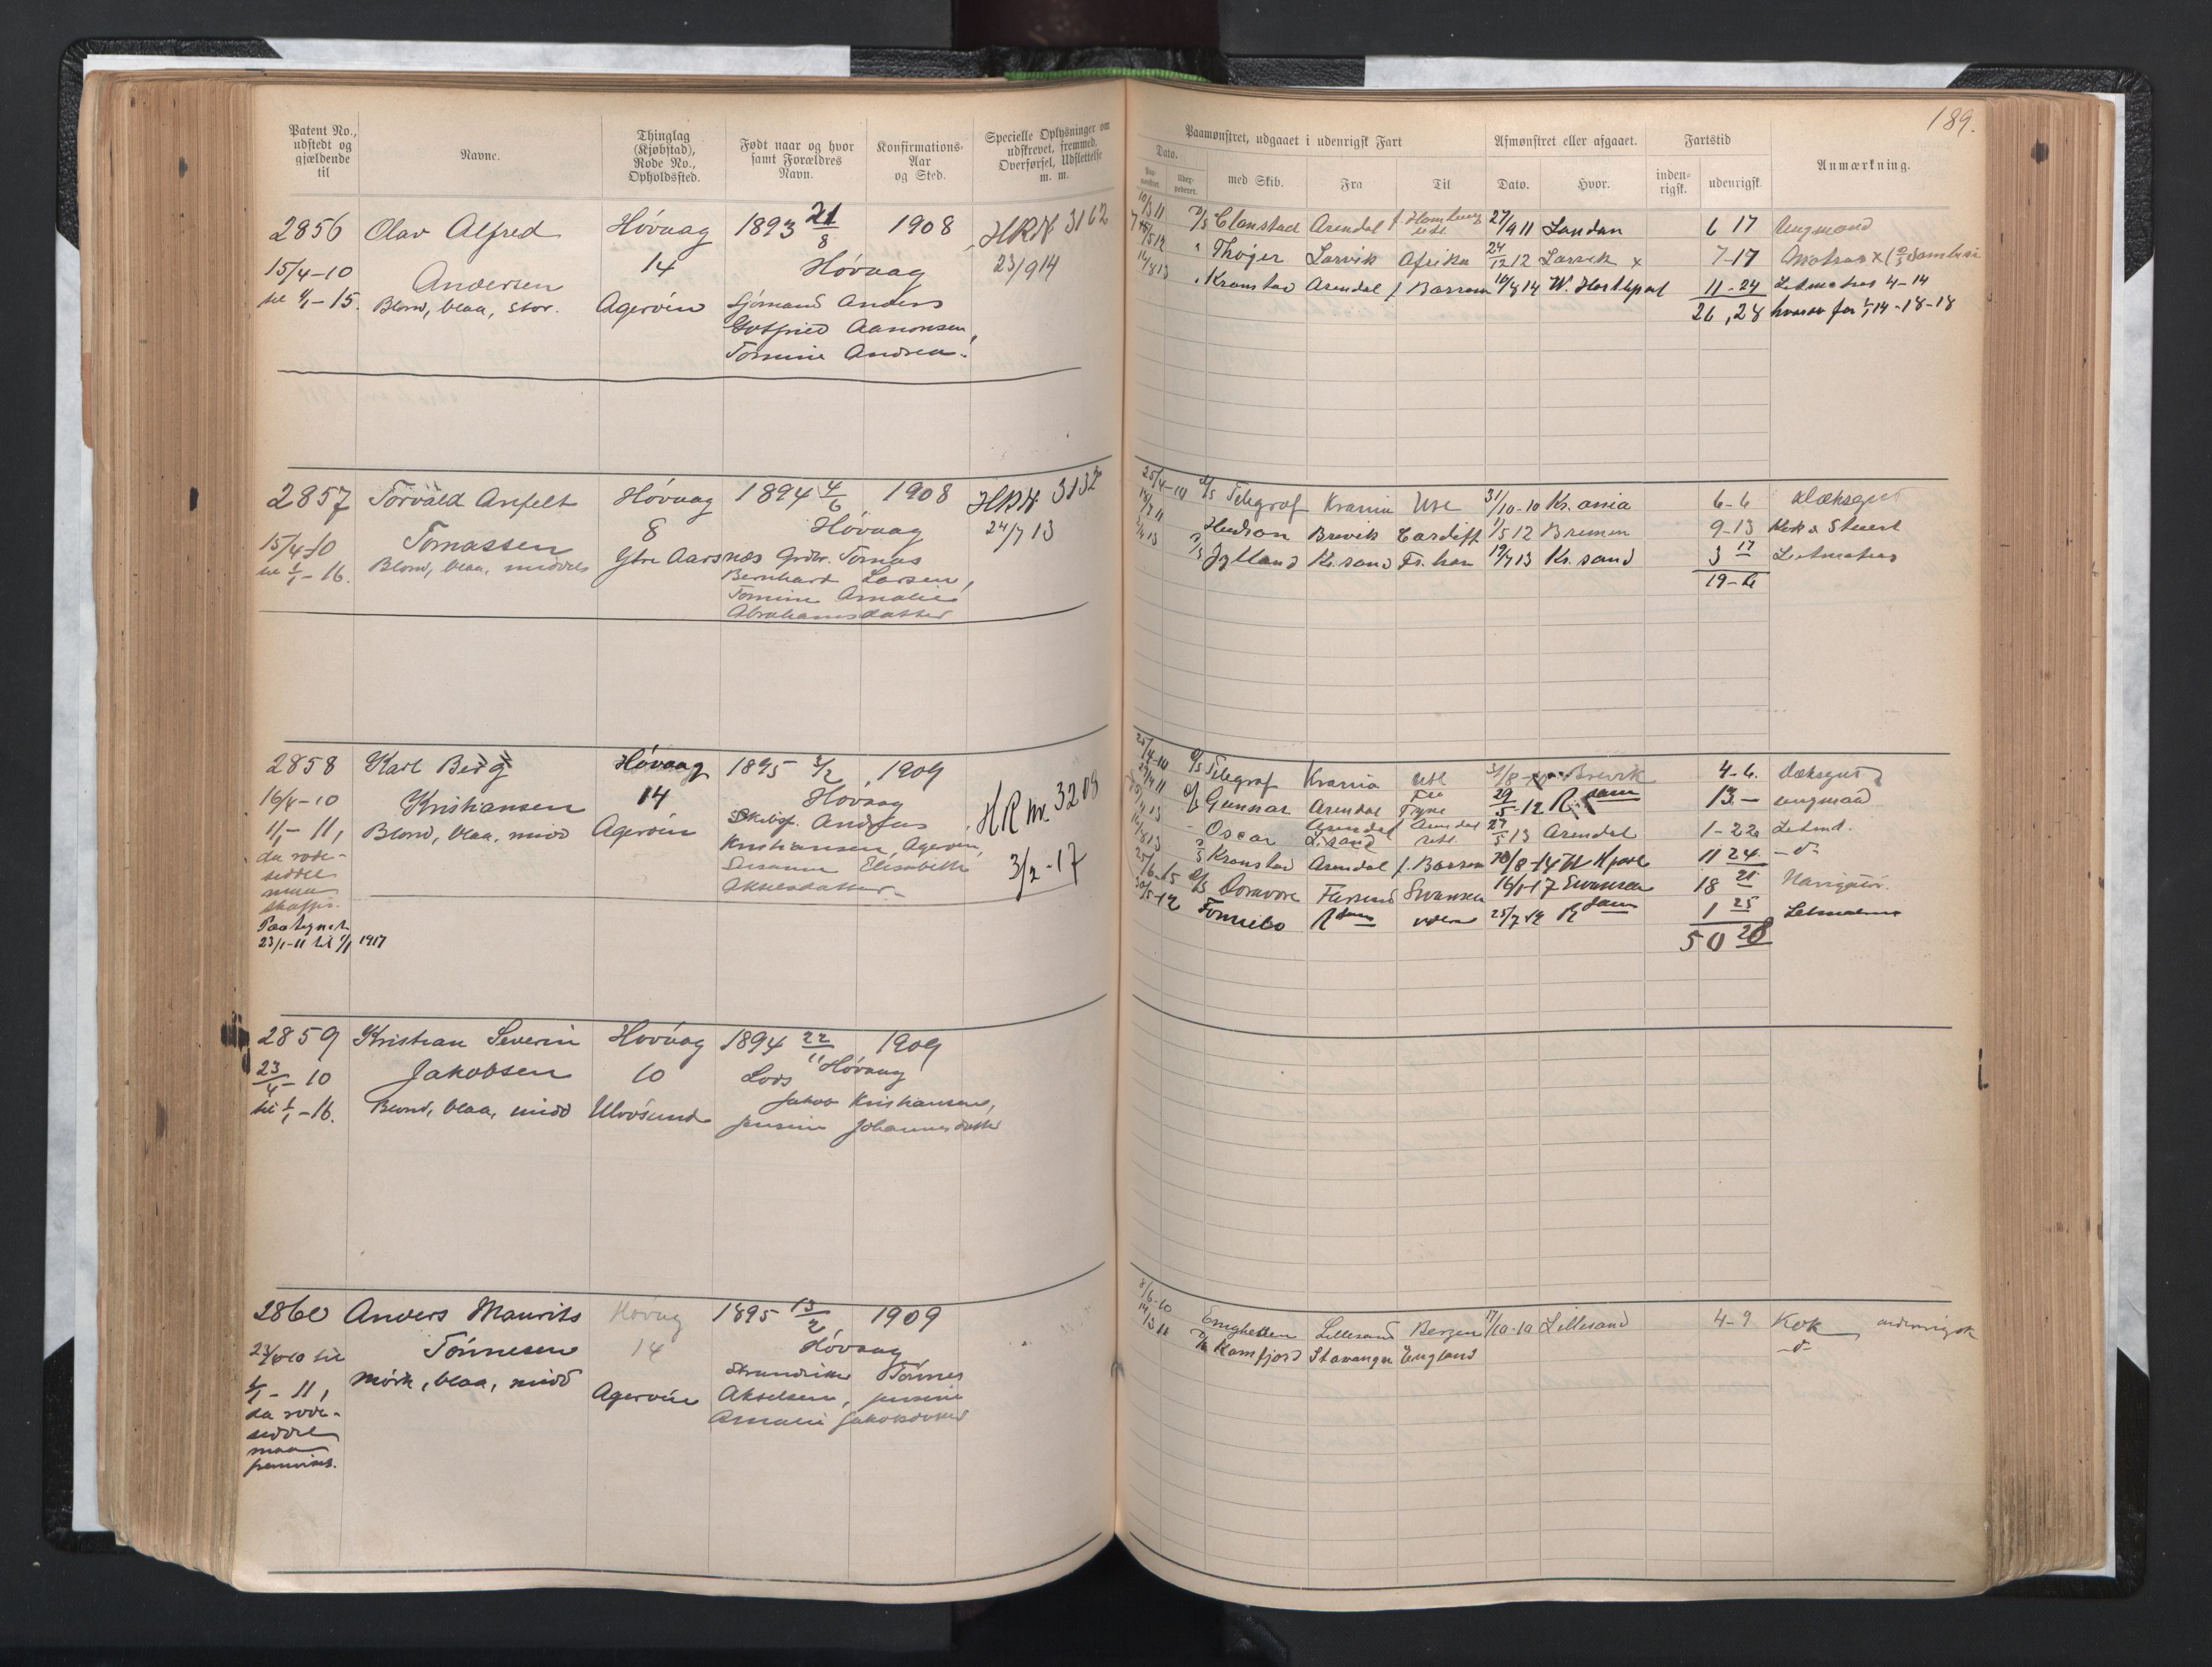 Patent No., udstedt og gjældende til
Navne.
Thinglag (Kjøbstad), Rode No., Opholdssted.
Født naar og hvor samt Forældres Navn.
Konfirmations-Aar og Sted.
Specielle Oplysninger om udskrevet, fremmed, Overførsel, Udslettelse m. m.
2856 Olav Alfred Høvaag 1893 21/8 1908 HRN 3162
15/4-10 Andersen 14 Høvaag 23/9 14
til 1/1-15. Blond, blaa, stor. Agerøen Sjømand Anders
Gotfried Aanonsen,
Tomine Andrea.
2857 Torvald Anfelt Høvaag 1894 4/6 1908 HRN 3132
15/4-10 Tomassen 8 Høvaag 24/7 13
til 1/1-16. Blond, blaa, middels Ytre Aarsnæs Grdbr. Tomas
Bernhard Larsen,
Tomine Amalie
Abrahamsdatter
2858 Karl Berg Høvaag 1895 2/2 1909
16/4-10 Kristiansen 14 Høvaag HR nr. 3208
1/1-11, Blond, blaa, midd Agerøen Skibsf. Andreas
da rode- Kristiansen, Agerøen,
seddel Susanne Elisabeth 3/2-17
maa Akselsdatter
skaffes.
Paategnet
23/1-11 til 1/1 1917
2859 Kristian Severin Høvaag 1894 22/11 1909
23/4-10 Jakobsen 10 Lods Høvaag
til 1/1-16. Blond, blaa, midd Ulvøsund Jakob Kristiansen,
Jensine Johannesdatter
2860 Anders Maurits Høvag 1895 13/2 1909
23/4-10 til Tønnesen 14 Høvaag
1/1-11, mørk, blaa, midd Agerøen Strandsidder Tønnes
da rode- Akselsen, Jensine
seddel Amalie Jakobsdatter
maa
189.
Paamønstret, udgaaet i udenrigsk Fart
Afmønstret eller afgaaet.
Fartstid
Anmærkning.
Dato.
med Skib. Fra Til Dato. Hvor. inden-rigsk. udenrigsk.
10/3 11 Arendal f Hamburg 27/9 11 London 6 17 Ungmand
Thojer Larvik Afrika 24/12 12 Larvik x 7-17 Matros x
14/8 13 " Kronstad Arendal f. Barrow 10/8 14 W. Hartlepool 11-24 Letmatros 4-14
26,28 hvorav før 1/1 14-18-18
25/4-10 D/S Telegraf Krania Udl 31/10-10 Kr.ania 6-6 Dæksgut
Hudson Brevik Cardiff 1/5 12 Bremen 9-13 Kok & Stuert
Jylland Kr.sand Fr.havn 19/7 13 Kr.sand 3 17 Letmatros
19-6
25/4-10 D/S Telegraf Krania Udl 31/8-10 Brevik 4-6. Dæksgut
Gunnar Arendal Tyne 29/5-12 R.dam 13.- ungmand
Oscar Arendal 27/5 13 Arendal 1-22 Letmt.
14/8 13 Kronstad Arendal f. Barrow 10/8-14 W Hpool 11 24 -d-
25/6-15 D/S Farsund Swansea 16/1-17 Swansea 18 21
30/5-12 Fornebo Rdam 25/7 12 Rdam 1 25 Letmatros
50 28
8/6-10 Enigheden Lillesand Bergen 17/10-10 Lillesand 4-9 Kok indenrigsk
Ramfjord Stavanger England -d-